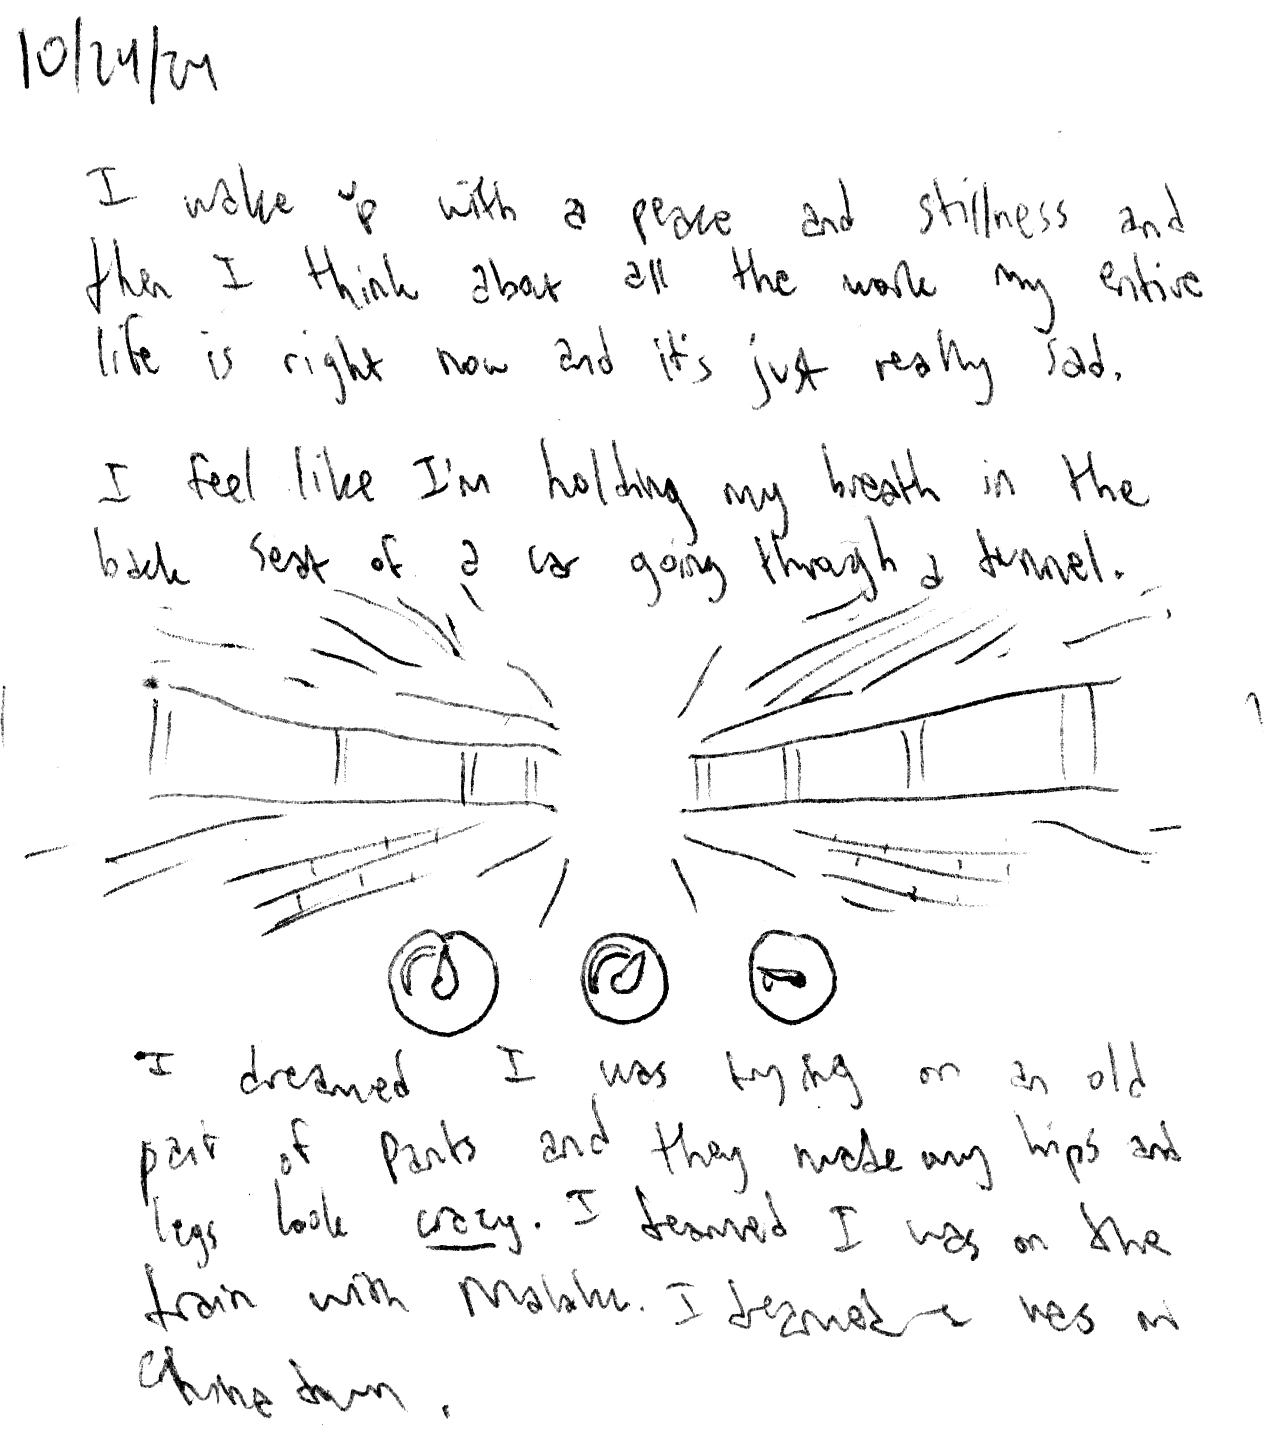 10/24/24
I wake up with a peace and stillness and
then I think about all the work my entire
life is right now and it's just really sad.
I feel like I'm holding my breath in the
back seat of a car going through a tunnel.
I dreamed I was trying on an old
pair of pants and they made my hips and
legs look crazy. I dreamed I was on the
train with I dreamed was in
Chinatown.